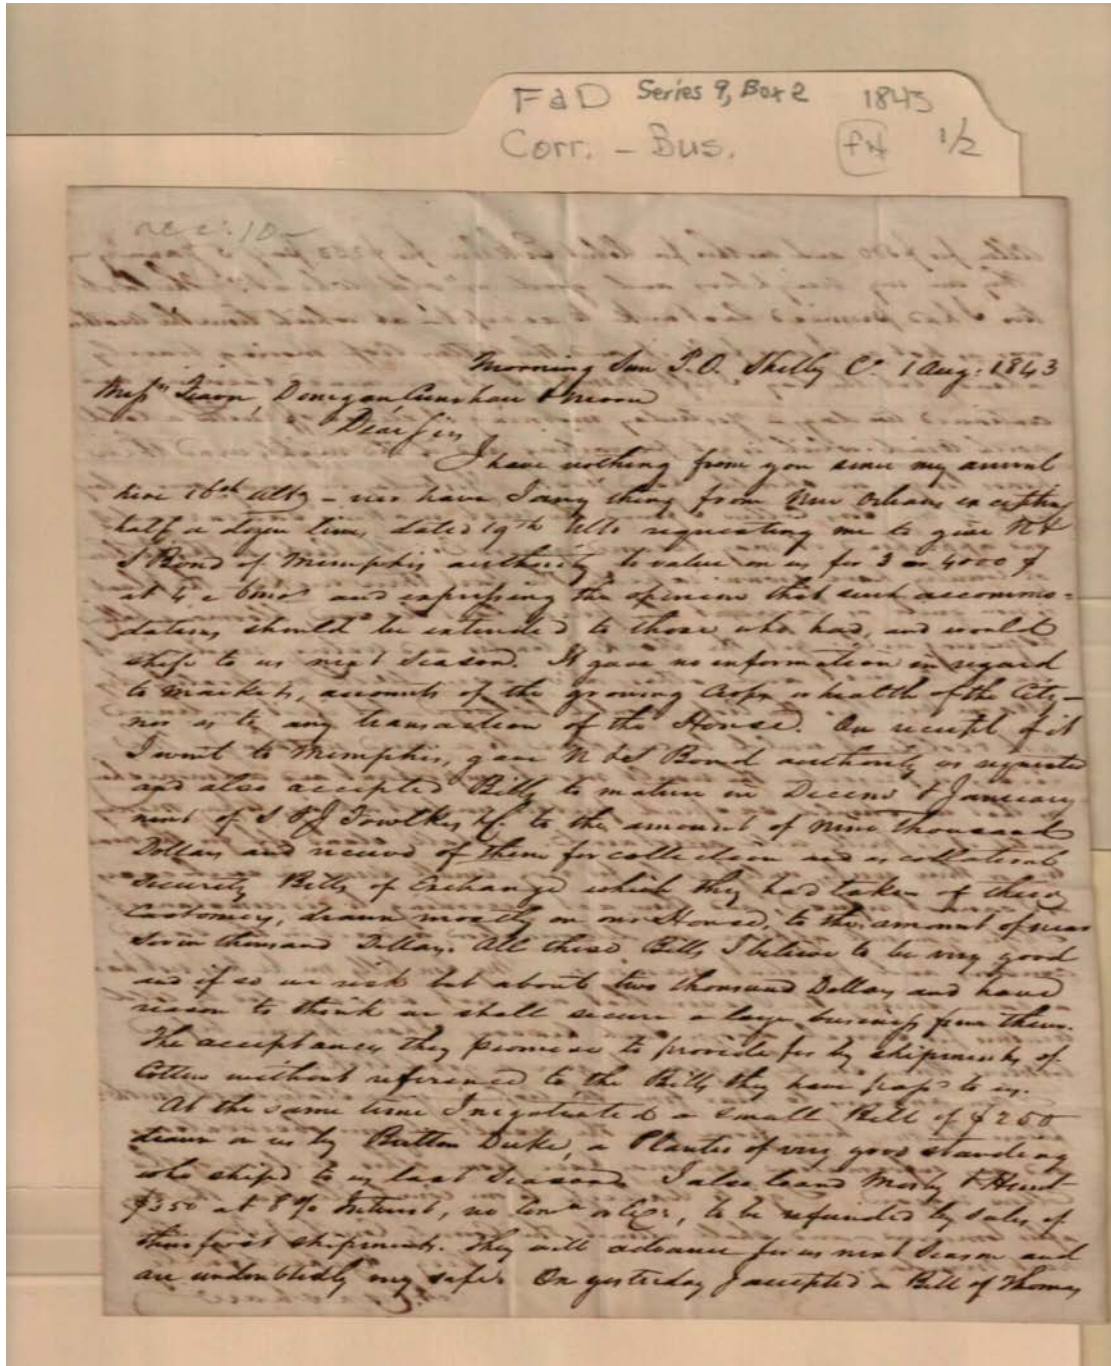 FaD Series 9, Box 2 1843
Corr. - Bus. 1/2
rec: 10
Morning Sun P.O. Shelby Co. 1 Aug: 1843
Messrs Fearn, Donegan, Crenshaw &
Dear Sirs
I have nothing from you since my arrival
here 16th ulto - nor have I any thing from New Orleans excepting
half a dozen lines, dated 19th ulto requesting me to give N &
S Bond of Memphis authority to value on us for 3 or 4000 $
at 4 a 6mos and expressing the opinion that such accommo-
dations should be extended to those who had, and would
ship to us next Season. It gave no information in regard
to markets, accounts of the growing Crops or health of the City -
nor as to any transaction of the House. On receipt of it
I went to Memphis, gave N & S Bond authority as requested
and also accepted Bills to mature in Decem & January
next of S & J Fowlkes to the amount of Nine Thousand
Dollars and received of them for collection and as collateral
Security Bills of Exchange which they had taken of their
Customers, drawn mostly on our House, to the amount of near
Seven thousand Dollars. All these Bills I believe to be very good
and if so we risk but about two thousand Dollars and have
reason to think we shall secure a large business from them.
The acceptances they promise to provide for by shipments of
Cotton without reference to the Bills they have pass'd to us.
At the same time I negotiated a small Bill of $250
drawn on us by Britton Duke, a Planter of very good standing
who ship'd to us last Season. I also loan'd & Hunt
$350 at 8 % Interest, no, to be refunded by sales of
their first shipments. They will advance for us next Season and
are undoubtedly very safe. On yesterday I accepted a Bill of Thomas